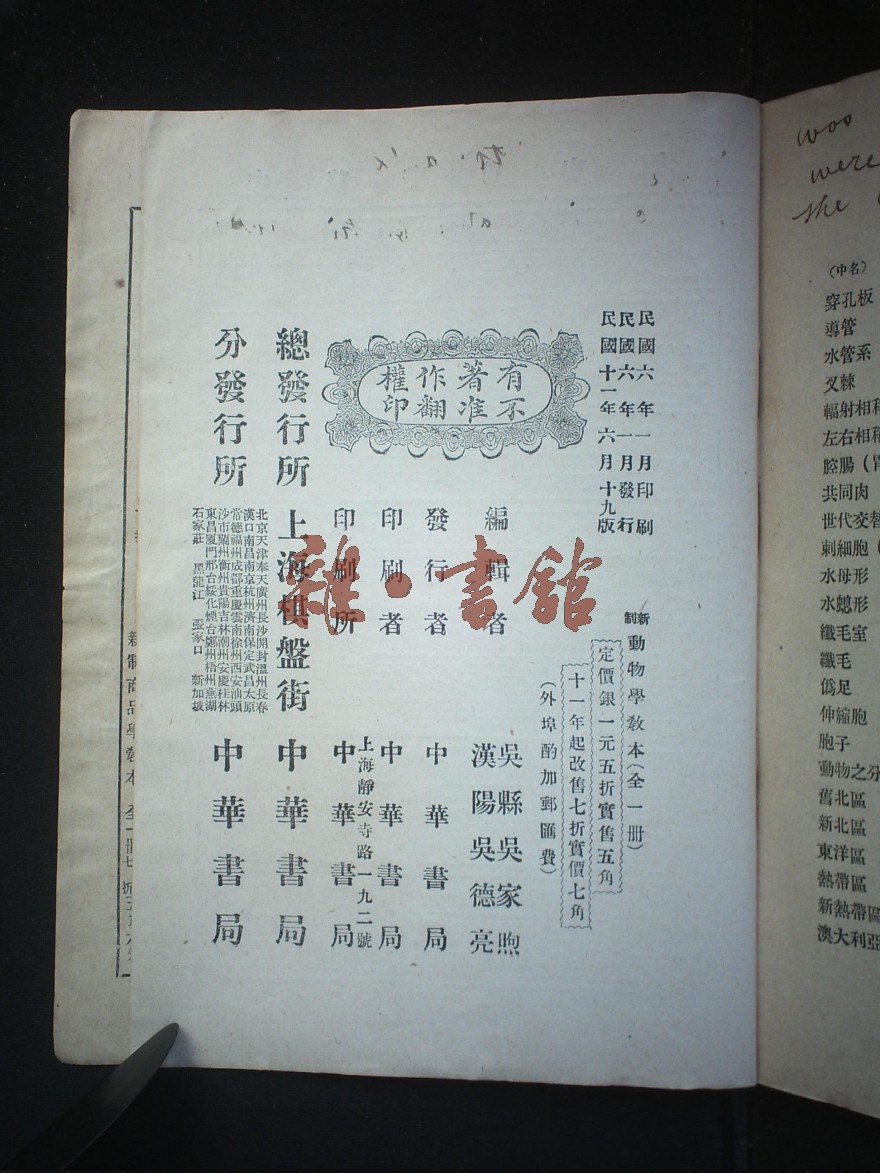 was
were
the
(中名)
穿孔板
導管
水管系
叉棘
輻射相稱
左右相稱
腔腸
共同肉
世代交替
刺細胞
水母形
水螅形
纖毛室
纖毛
僞足
伸縮胞
胞子
動物之分
舊北區
新北區
東洋區
熱帶區
新熱帶區
澳大利亞
民國六年一月印刷
民國六年一月發行
民國十一年六月十九版
有著作權
不准翻印
新制動物學教本(全一冊)
定價銀一元五折實售五角
十一年起改售七折實價七角
(外埠酌加郵匯費)
編輯者 吳縣吳家煦
漢陽吳德亮
發行者 中華書局
印刷者 中華書局
上海靜安寺路一九二號
印刷所 中華書局
總發行所 上海棋盤街 中華書局
分發行所 中華書局
北京天津奉天廣州長沙開封溫州長春
漢口南昌南京杭州濟南保定武昌太原
常德福州成都重慶雲南徐州西安汕頭
沙市蘭州衡州貴陽吉林潮州安慶桂林
東昌廈門邢台綏化煙台鄭州梧州蕪湖
石家莊 黑龍江 張家口 新加坡
雜·書館
新制商品學教本 全一冊